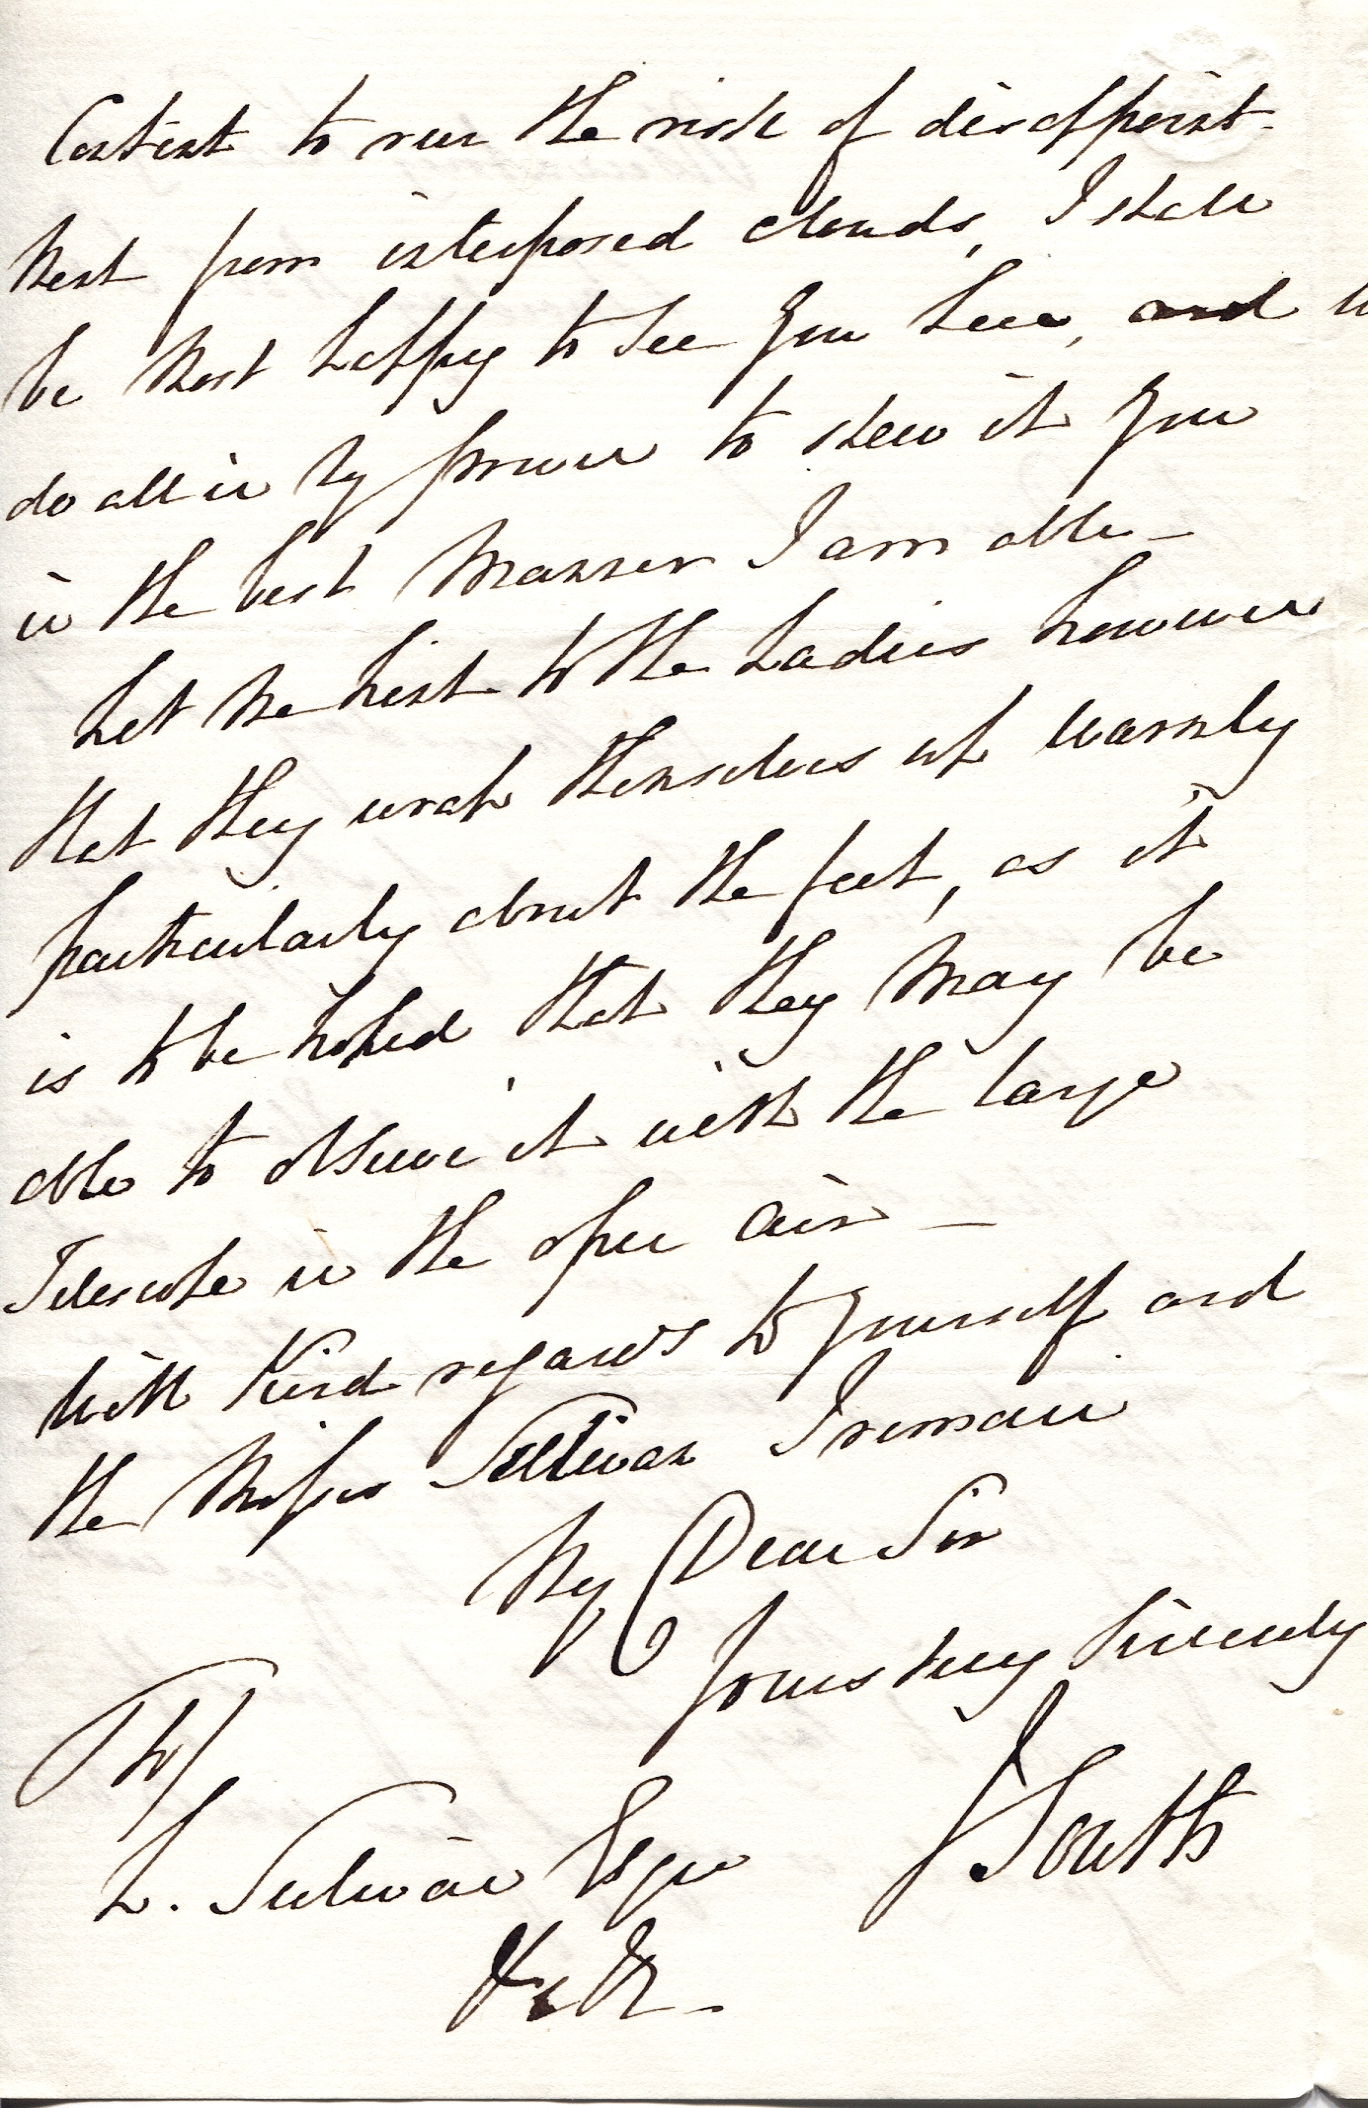 Content to run the risk of disappoint-
ment from interposed clouds, I shall
be most happy to see you here, and
do all in my power to shew it you
in the best manner I am able —
Let me hint to the Ladies however
that they wrap themselves up warmly
particularly about the feet, as it
is to be hoped that they may be
able to observe it with the large
Telescope in the open air —
With Kind regards to yourself and
the Misses Sullivan I remain
My Dear Sir
Yours very sincerely
J South
To/
L. Sulivan Esqre
&c &c -